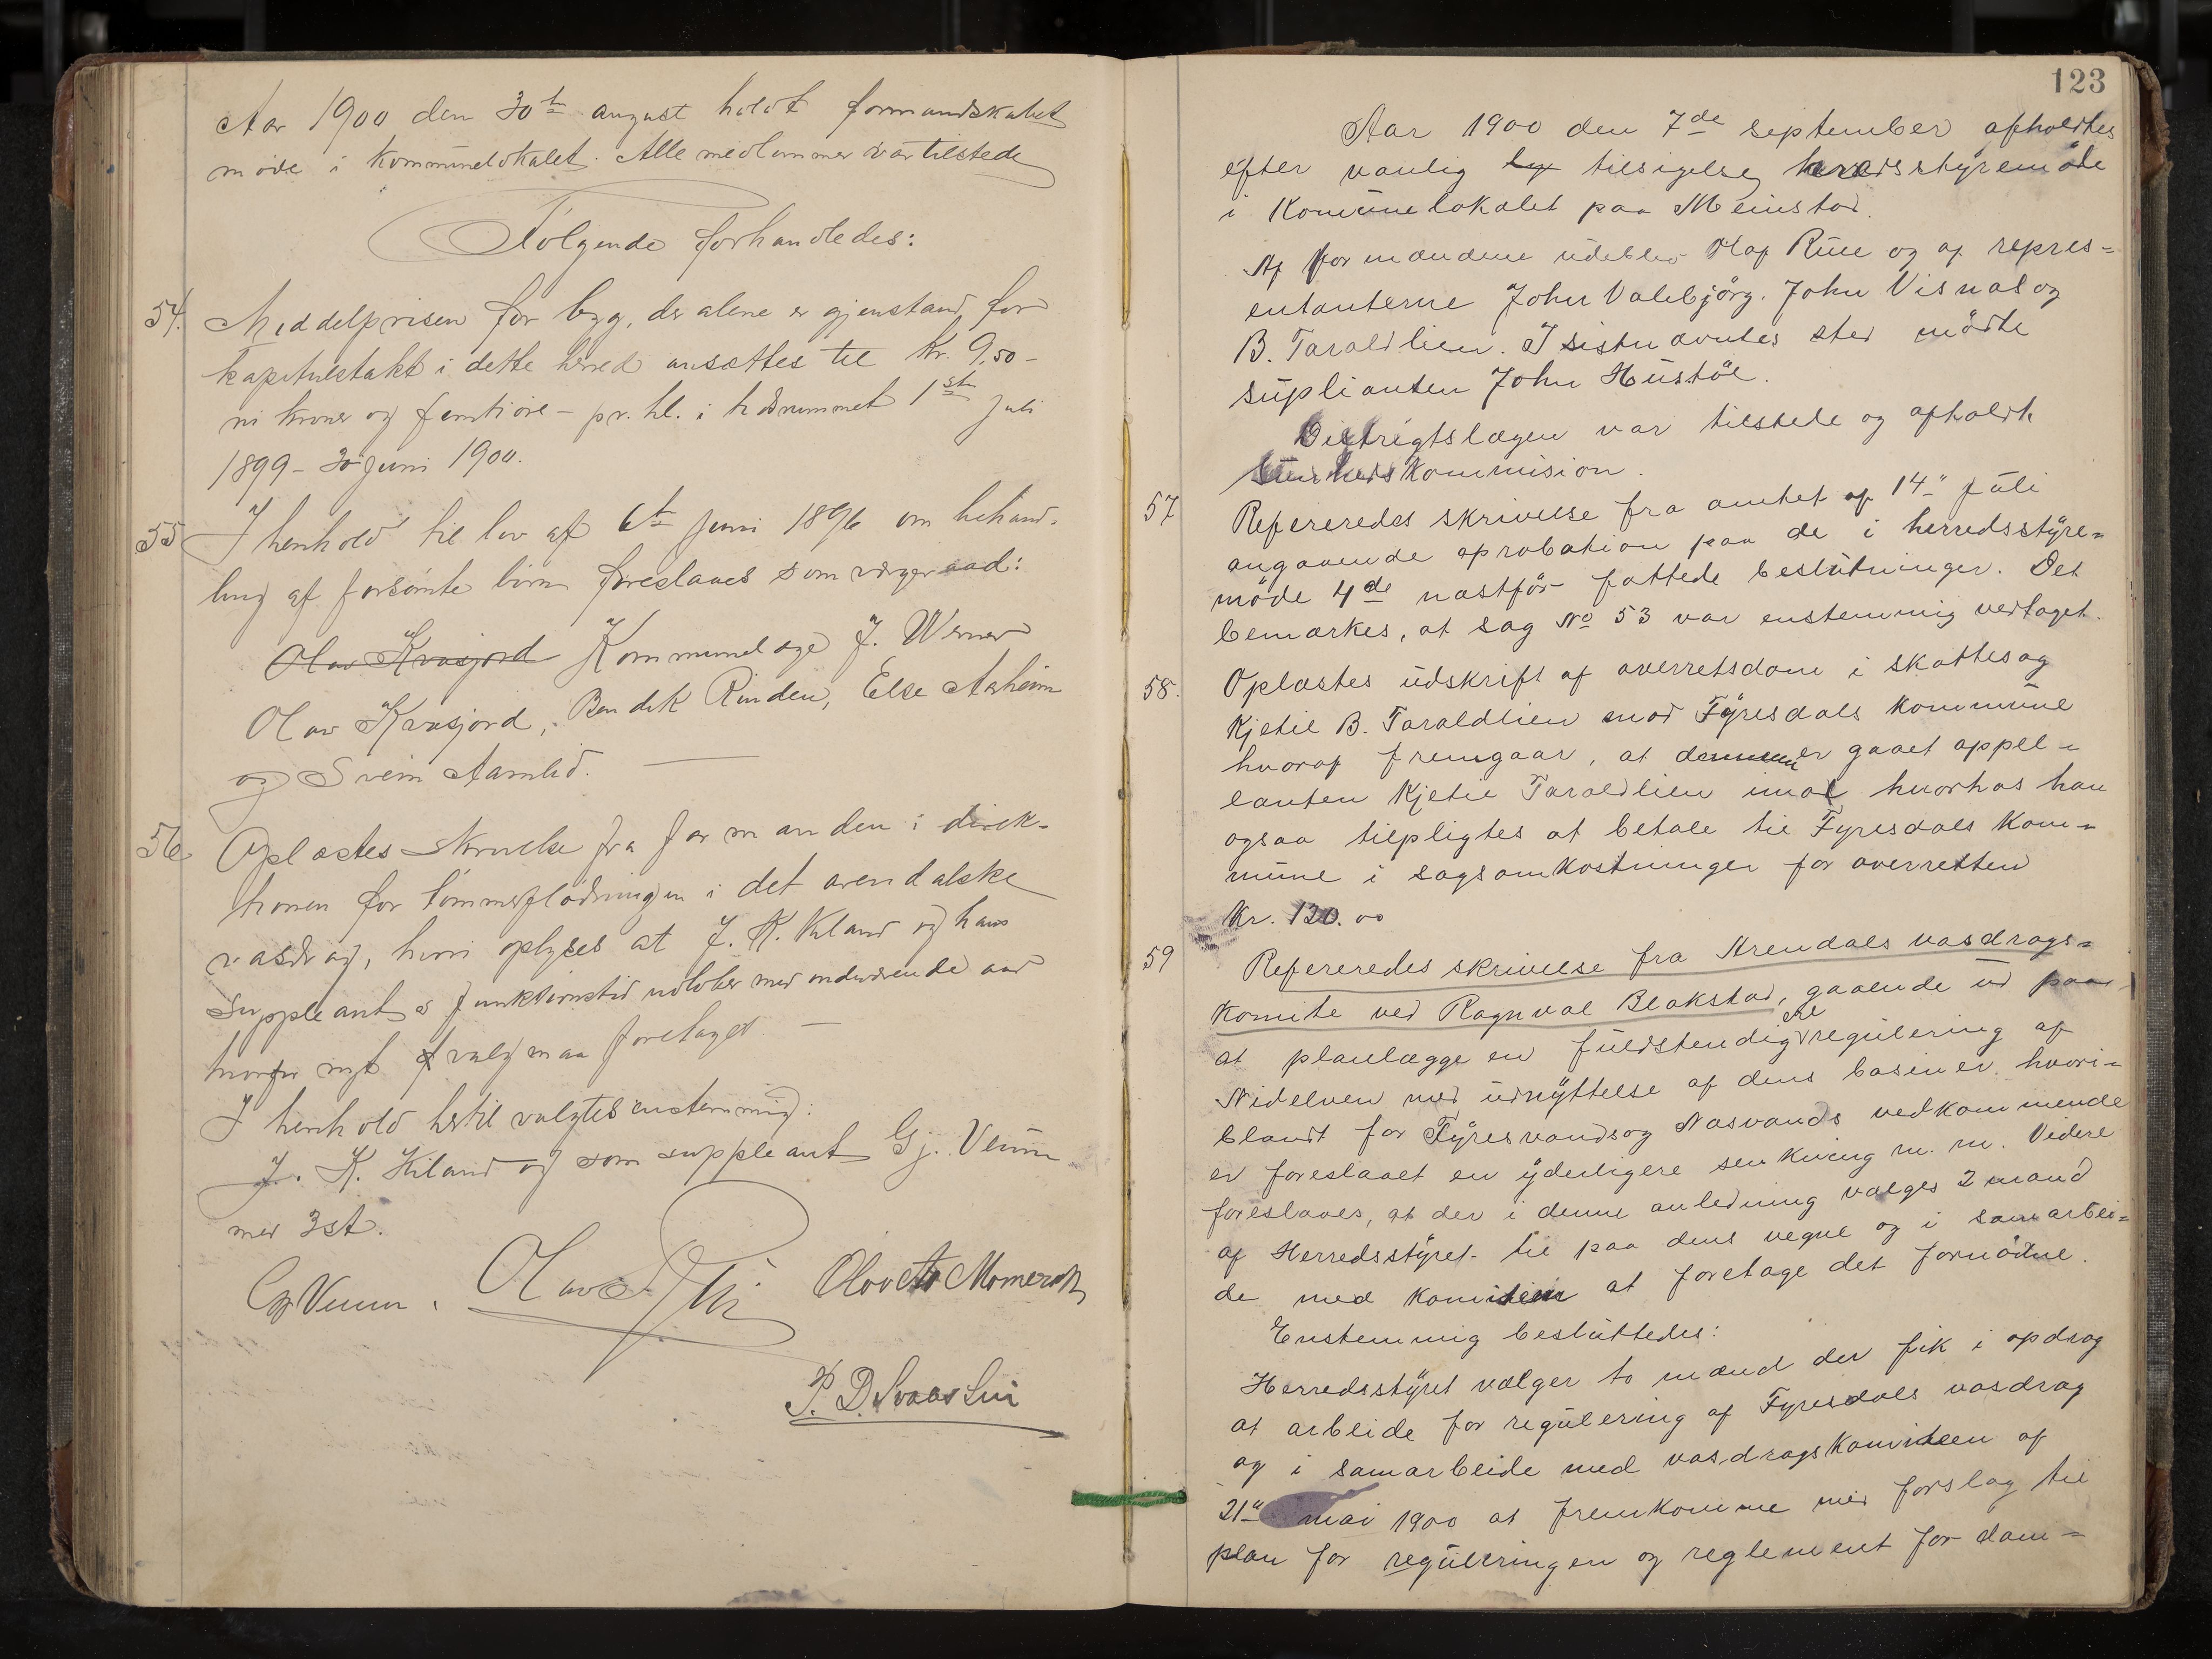 Aar 1900 den 30te august holdt formandskabet
møde i kommunelokalet. Alle medlemmer var tilstede
Følgende forhandledes:
54. Middelprisen for byg, der alene er gjenstand for
kapitulstakt i dette herred ansættes til Kr. 9,50 -
ni kroner og femti øre - pr. hl. i tidsrummet 1ste juli
1899 - 30 juni 1900.
55 I henhold til lov af 6te juni 1896 om behand-
ling af forsømte børn foreslaaes som vergeraad:
Olav Kvasjord Kommunelæge J. Werner
Olav Kvasjord, Bendik Rinden, Else Aasheim
og Svein Aamlid.
56 Oplæstes skrivelse fra formanden i direk-
tionen for tømmerflødningen i det arendalske
vasdrag, hvori oplyses at J. K. Kiland og hans
suppleants funktionstid udløber med indeværende aar
hvorfor nyt valg maa foretages
I henhold hertil valgtes enstemmig:
J. K. Kiland og som suppleant Gj. Veum
med 3 st.
Gj Veum. Olav Olav Momerak
P. D. Svaaslid
123
Aar 1900 den 7de september afholdtes
efter vanlig tilsigelse herredsstyremøde
i Komunelokalet paa Meinstad.
Af formændene udeblev Olaf Rue og af repres-
entanterne John Valebjørg. John Visnas og
B. Taraldlien. I sistnævntes sted mødte
suplianten John Hustøl.
Distrigtslægen var tilstede og afholdt
Sundheds Kommision.
57 Refereredes skrivelse fra amtet af 14" juli
angaaende aprobation paa de i herredsstyre-
møde 4de næstfør fattede beslutninger. Det
bemærkes, at sag No 53 var enstemmig vedtaget.
58. Oplæstes udskrift af overretsdom i skattesag
Kjetil B. Taraldlien mod Fyresdals Kommune
hvoraf fremgaar, at denne er gaaet appel-
lanten Kjetil Taraldlien imod hvorhos han
ogsaa tilpligtes at betale til Fyresdals Kom-
mune i sagsomkostninger for overretten
Kr. 120.00
59 Refereredes skrivelse fra Arendals vasdrags-
Komite ved Ragnval Blakstad, gaaende ud paa
at planlægge en fuldstendigere regulering af
Nidelven med udnyttelse af dens basiner hvori-
blandt for Fyresvands og Næsvands vedkommende
er foreslaaet en yderligere senkning m. m. Videre
foreslaaes, at der i denne anledning vælges 2 mand
af Herredsstyret til paa dens vegne og i samarbei-
de med Komiteen at foretage det fornødne.
Enstemmig besluttedes:
Herredsstyret vælger to mænd der fik i opdrag
at arbeide for regulering af Fyresdals vasdrag
og i samarbeide med vasdragsKomiteen af
21" mai 1900 at fremkomme med forslag til
plan for reguleringen og reglement for dam-